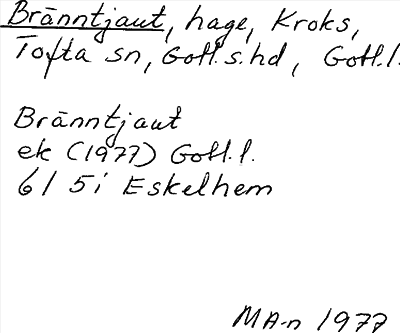 Bränntjaut, hage, Kroks,
Tofta sn, Gotl. s. hd, Gotl. l.
Bränntjaut
ek (1977) Gotl. l.
6I 5i Eskelhem
MA-n 1977